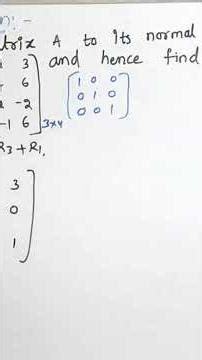 trix A to its normal
3
and hence find
6
-2
-1 6
3x4
1 0 0
0 1 0
0 0 1
R3 + R1,
3
0
1